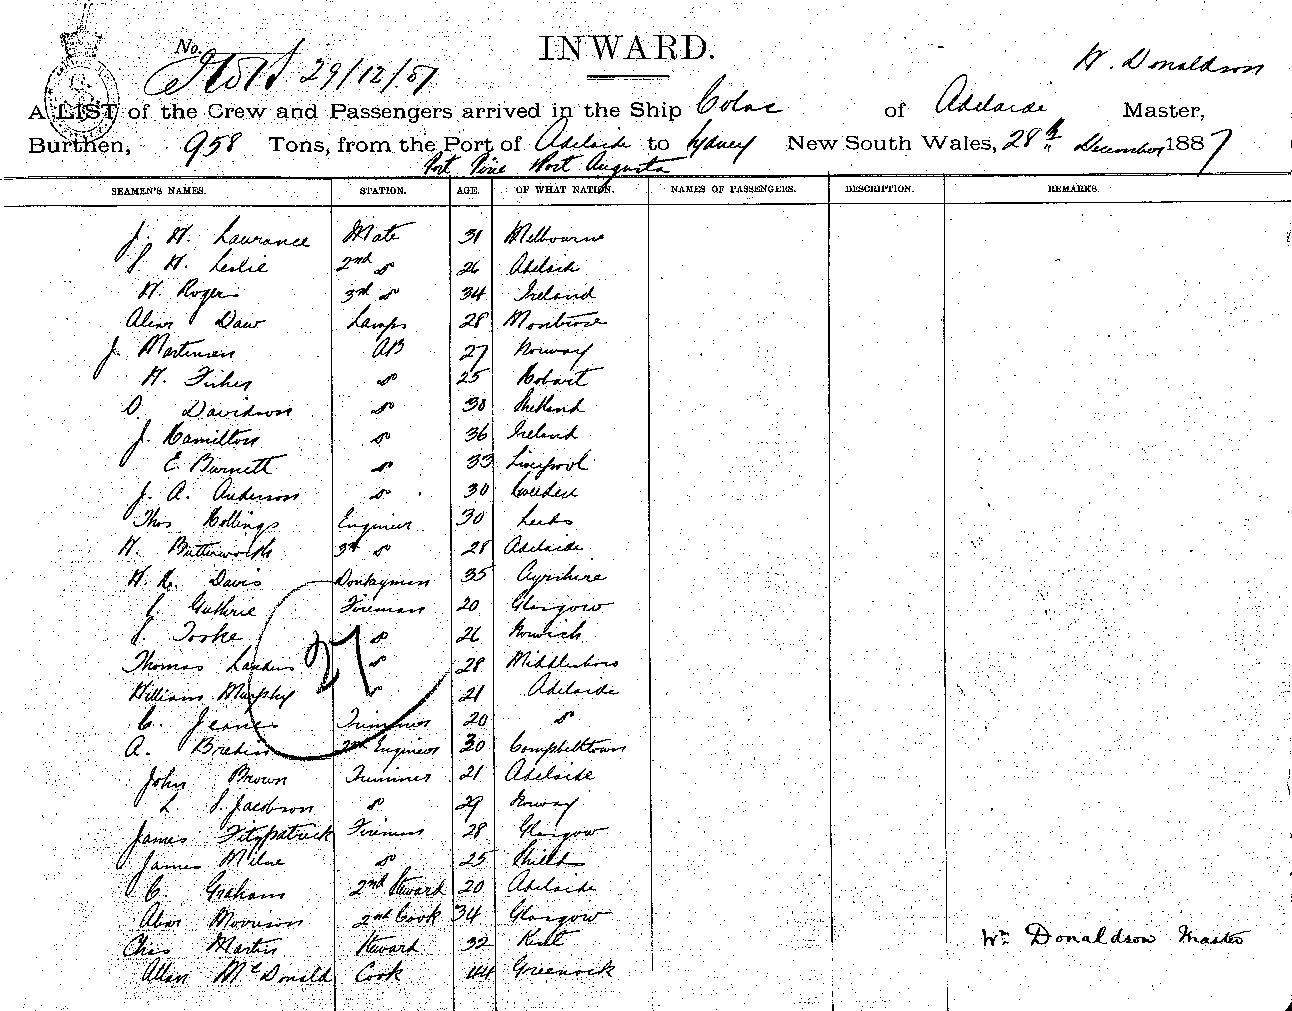 No. 29/12/87
INWARD.
W. Donaldson
A LIST of the Crew and Passengers arrived in the Ship Colac of Adelaide Master,
Burthen, 958 Tons, from the Port of Adelaide to Sydney New South Wales, 28th December 1887
Port Pirie Port Augusta
SEAMEN'S NAMES. STATION. AGE. OF WHAT NATION. NAMES OF PASSENGERS. DESCRIPTION. REMARKS.
J. W. Laurance Mate 31 Melbourne
W. Leslie 2nd do 26 Adelaide
W. Rogers 3rd do 34 Ireland
Alexr Daw Lamps 28 Montrose
J. Martinsen AB 27 Norway
W. Fisher do 25 Hobart
D. Davidson do 30 Shetland
J. Hamilton do 36 Ireland
E. Burnett do 33 Liverpool
J. A. Anderson do 30 Sweden
Thos Hollings Engineer 30 Leeds
W. Butterworth 3rd do 28 Adelaide
W. R. Davis Donkeyman 35 Ayrshire
Guthrie Fireman 20 Glasgow
Tooke do 26 Norwich
Thomas Landers do 28 Middlesboro
William Murphy do 21 Adelaide
C. Jeanes Trimmer 20 do
A. 2nd Engineer 30 Campbelltown
John Brown Trimmer 21 Adelaide
L. P. Jacobson do 29 Norway
James Fitzpatrick Fireman 28 Glasgow
James Milne do 25 Shields
C. Graham 2nd Steward 20 Adelaide
Alexr Morrison 2nd Cook 34 Glasgow
Chas Martin Steward 32 Kent
Allan McDonald Cook 44 Greenock
27
Wm Donaldson Master